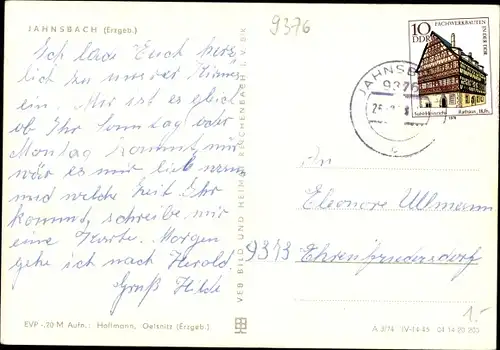 JAHNSBACH (Erzgeb.)
9376
Ich lade Euch herz-
lich zu unsrer Kirmes
ein. Mir ist es gleich
ob Ihr Sonntag oder
Montag kommt, nur
wär es mir lieb wenn
und welche Zeit Ihr
kommt, schreibe mir
eine Karte. Morgen
gehe ich nach Herold.
Gruß Hilde
EVP -,20 M Aufn.: Hoffmann, Oelsnitz (Erzgeb.)
VEB BILD UND HEIMAT REICHENBACH I. V. BK
FACHWERKBAUTEN
IN DER DDR
10
DDR
JAHNSB
9376
c
An
Eleonore Ullmann
9373 Ehrenfriedersdorf
1.-
A 3/74 IV-14-45 04 14 20 200